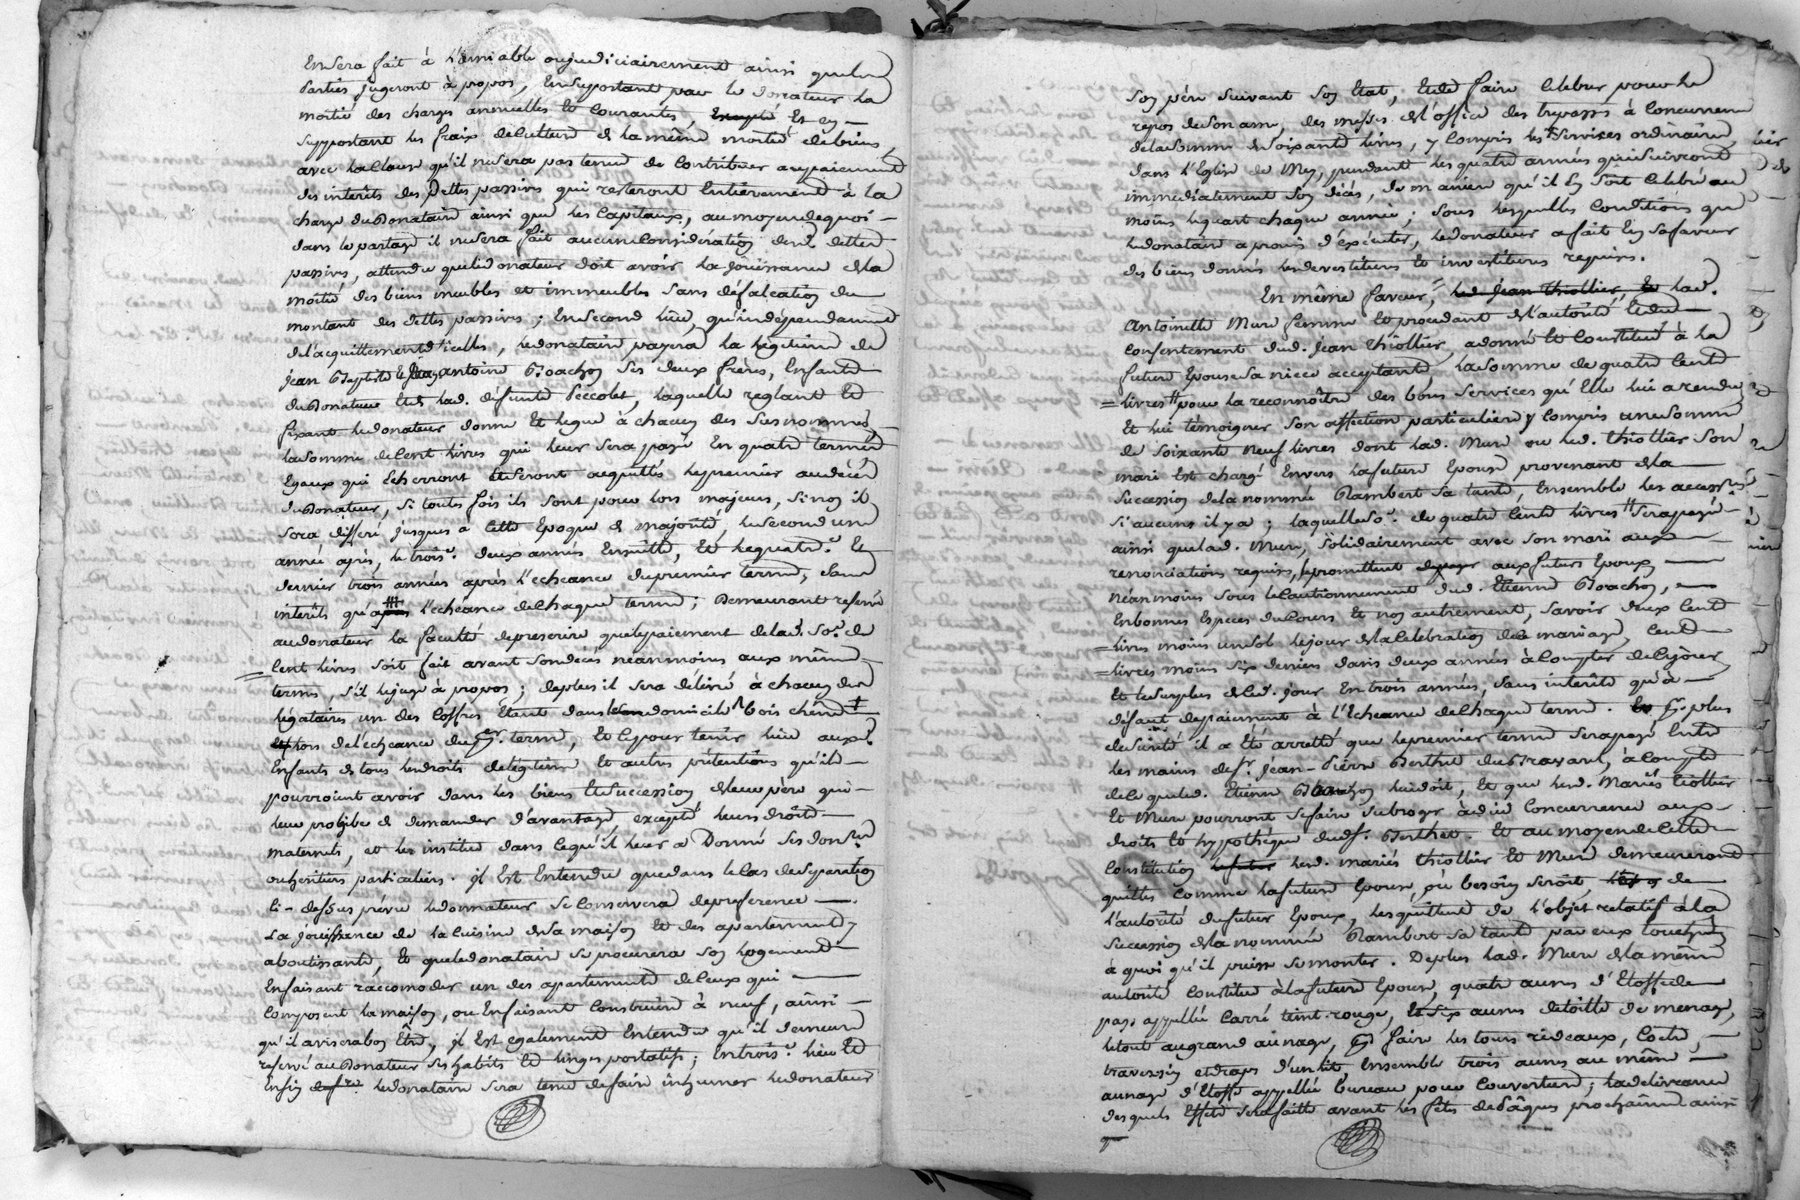 En sera fait à l'amiable ou judiciairement ainsi que les
parties jugeront à propos, En suportant par le donateur la
moitié des charges annuelles Et Courantes, Et en
supportant les fraix de culture de la même moitié de biens,
avec la clause qu'il ne sera pas tenu de contribuer au paiement
des interêts des Dettes passives qui resteront Entièrement à la
charge du Donataire ainsi que les Capitaux, au moyen de quoi
dans le partage il ne sera fait aucune Considération desd. dettes
passives, attendu que le donateur doit avoir la joüissance de la
moitié des biens meubles et immeubles sans défalcation du
montant des dettes passives; En second lieu, qu'indépendamment
de l'acquittement d'icelles, le donataire payera la légitime de
Jean Baptiste & Jean antoine Boachon ses deux frères, Enfants
du Donateur Et de lad. défunte Peccolet, laquelle reglant Et
fixant le donateur donne Et legue à chacun des susnommés
la somme de Cent livres qui leur sera payé En quatre termes
Egaux qui Echerront Et seront acquittés le premier au décès
du Donateur, si toutes fois ils sont pour lors majeurs, si non il
sera différé jusques à Cette Epoque de majorité, le second une
année après, le trois.e deux années Ensuitte, Et le quatr.e Et
dernier trois années après l'echeance du premier terme, sans
intérêts qu'après l'échéance de Chaque terme; Demeurant reservé
au donateur la faculté de prescrire que le paiement de lad. So.e de
Cent livres soit fait avant son decès néanmoins aux mêmes
termes, s'il le juge à propos; de plus il sera délivré à chacun des
légataires un des Coffres Etant dans le domicile bois chêne
lors de l'echeance du p.er terme, Et Ce pour tenir lieu auxd.
Enfants de tous les droits de légitime Et autres prétentions qu'ils
pourroient avoir dans les biens Et succession de leur père qui
leur prohibe de demander d'avantage excepté leurs droits
maternels, et les institue dans Ce qu'il leur a Donné ses don.res
ou heritiers particuliers. Il Est Entendu que dans le Cas de separation
Ci-dessus prévu le donnateur se Conservera de preference
La jouissance de la Cuisine de sa maison Et des apartements y
aboutissants, Et que le donataire se procurera son logement
En faisant raccomoder un des apartements de Ceux qui
Composent la maison, ou En faisant Construire à neuf, ainsi
qu'il avisera bon Être, il Est également Entendu qu'il demeure
reservé au Donateur ses habits Et linges portatifs; En trois.e lieu Et
Enfin le donataire sera tenu de faire inhumer le donateur
son père suivant son Etat, Et de faire Celebrer pour le
repos de son ame, des messes Et l'office des trepassés à Concurrence
de la somme de soixante livres, y Compris les Services ordinaires,
dans l'Eglise de Mey, pendant les quatre années qui suivront
immédiatement son décès, de manière qu'il En soit Celebré au
moins le quart chaque année; sous lesquelles Conditions que
le donataire a promis d'exécuter, le donateur a fait En sa faveur
des biens donnés les devestitures Et investitures requises.
En même faveur, led. Jean thiollier, Et lad.
Antoinette Mure femme Et procedant de l'autorité Et du
Consentement dud. Jean thiollier, a donné Et Constitué à la
future Epouse sa niece acceptante, la somme de quatre Cents
livres pour la reconnoître des bons Services qu'Elle lui a rendu
Et lui témoigner son affection particulière y Compris une somme
de soixante Neuf livres dont lad. Mure ou led. thiollier son
mari Est chargé Envers la future Epouse provenant de la
Succession de la nommée Rambert sa tante, Ensemble les access.res
si aucuns il y a; laquelle so.e de quatre Cents livres sera payée
ainsi que lad. Mure, solidairement avec son mari aux
renonciations requises, le promettent de payer aux futurs Epoux
Néanmoins sous le Cautionnement dud. Etienne Boachon,
En bonnes Especes du Cours Et non autrement, savoir deux Cents
livres moins un sol le jour de la Celebration de Ce mariage, Cent
livres moins six deniers dans deux années à Compter de Ce jour
Et le surplus de Ced. jour En trois années, sans intérêts qu'à
défaut de paiement à l'Echeance de Chaque terme. p.r plus
de sureté il a Eté arretté que le premier terme sera payé Entre
les mains de s.r Jean-Pierre Berthet du Bravard, à Compte
de Ce que led. Etienne Boachon lui doit, Et que lesd. Mariés thiollier
Et Mure pourront se faire subroger à due Concurrence aux
droits Et hypothéques dud. s.r Berthet. Et au moyen de Cette
Constitution lesd. mariés thiollier Et Mure demeureront
quittes Comme la future Epouse, où besoin seroit, de
l'autorité du futur Epoux, les quittent de l'objet relatif à la
succession de la nommée Rambert sa tante par eux touchée
à quoi qu'il puisse se monter. De plus lad. Mure de la même
autorité Constitue à la future Epouse, quatre aunes d'Etoffe du
pays appellée Carré teint-rouge, Et dix aunes de toille de menage,
le tout au grand aunage, p.r faire les tours rideaux, Coete,
traversin et draps d'un lit, Ensemble trois aunes au même
aunage d'Etoffe appellée bureau pour Couverture; la délivrance
desquels Effets sera faitte avant les fêtes de Pâques prochaines ainsi